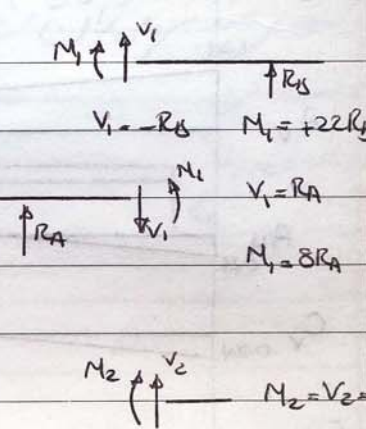 M₁ V₁
R_B
V₁ = -R_B M₁ = +22R_B
M₁
V₁ = R_A
R_A V₁
M₁ = 8R_A
M₂ V₂
M₂ = V₂ =